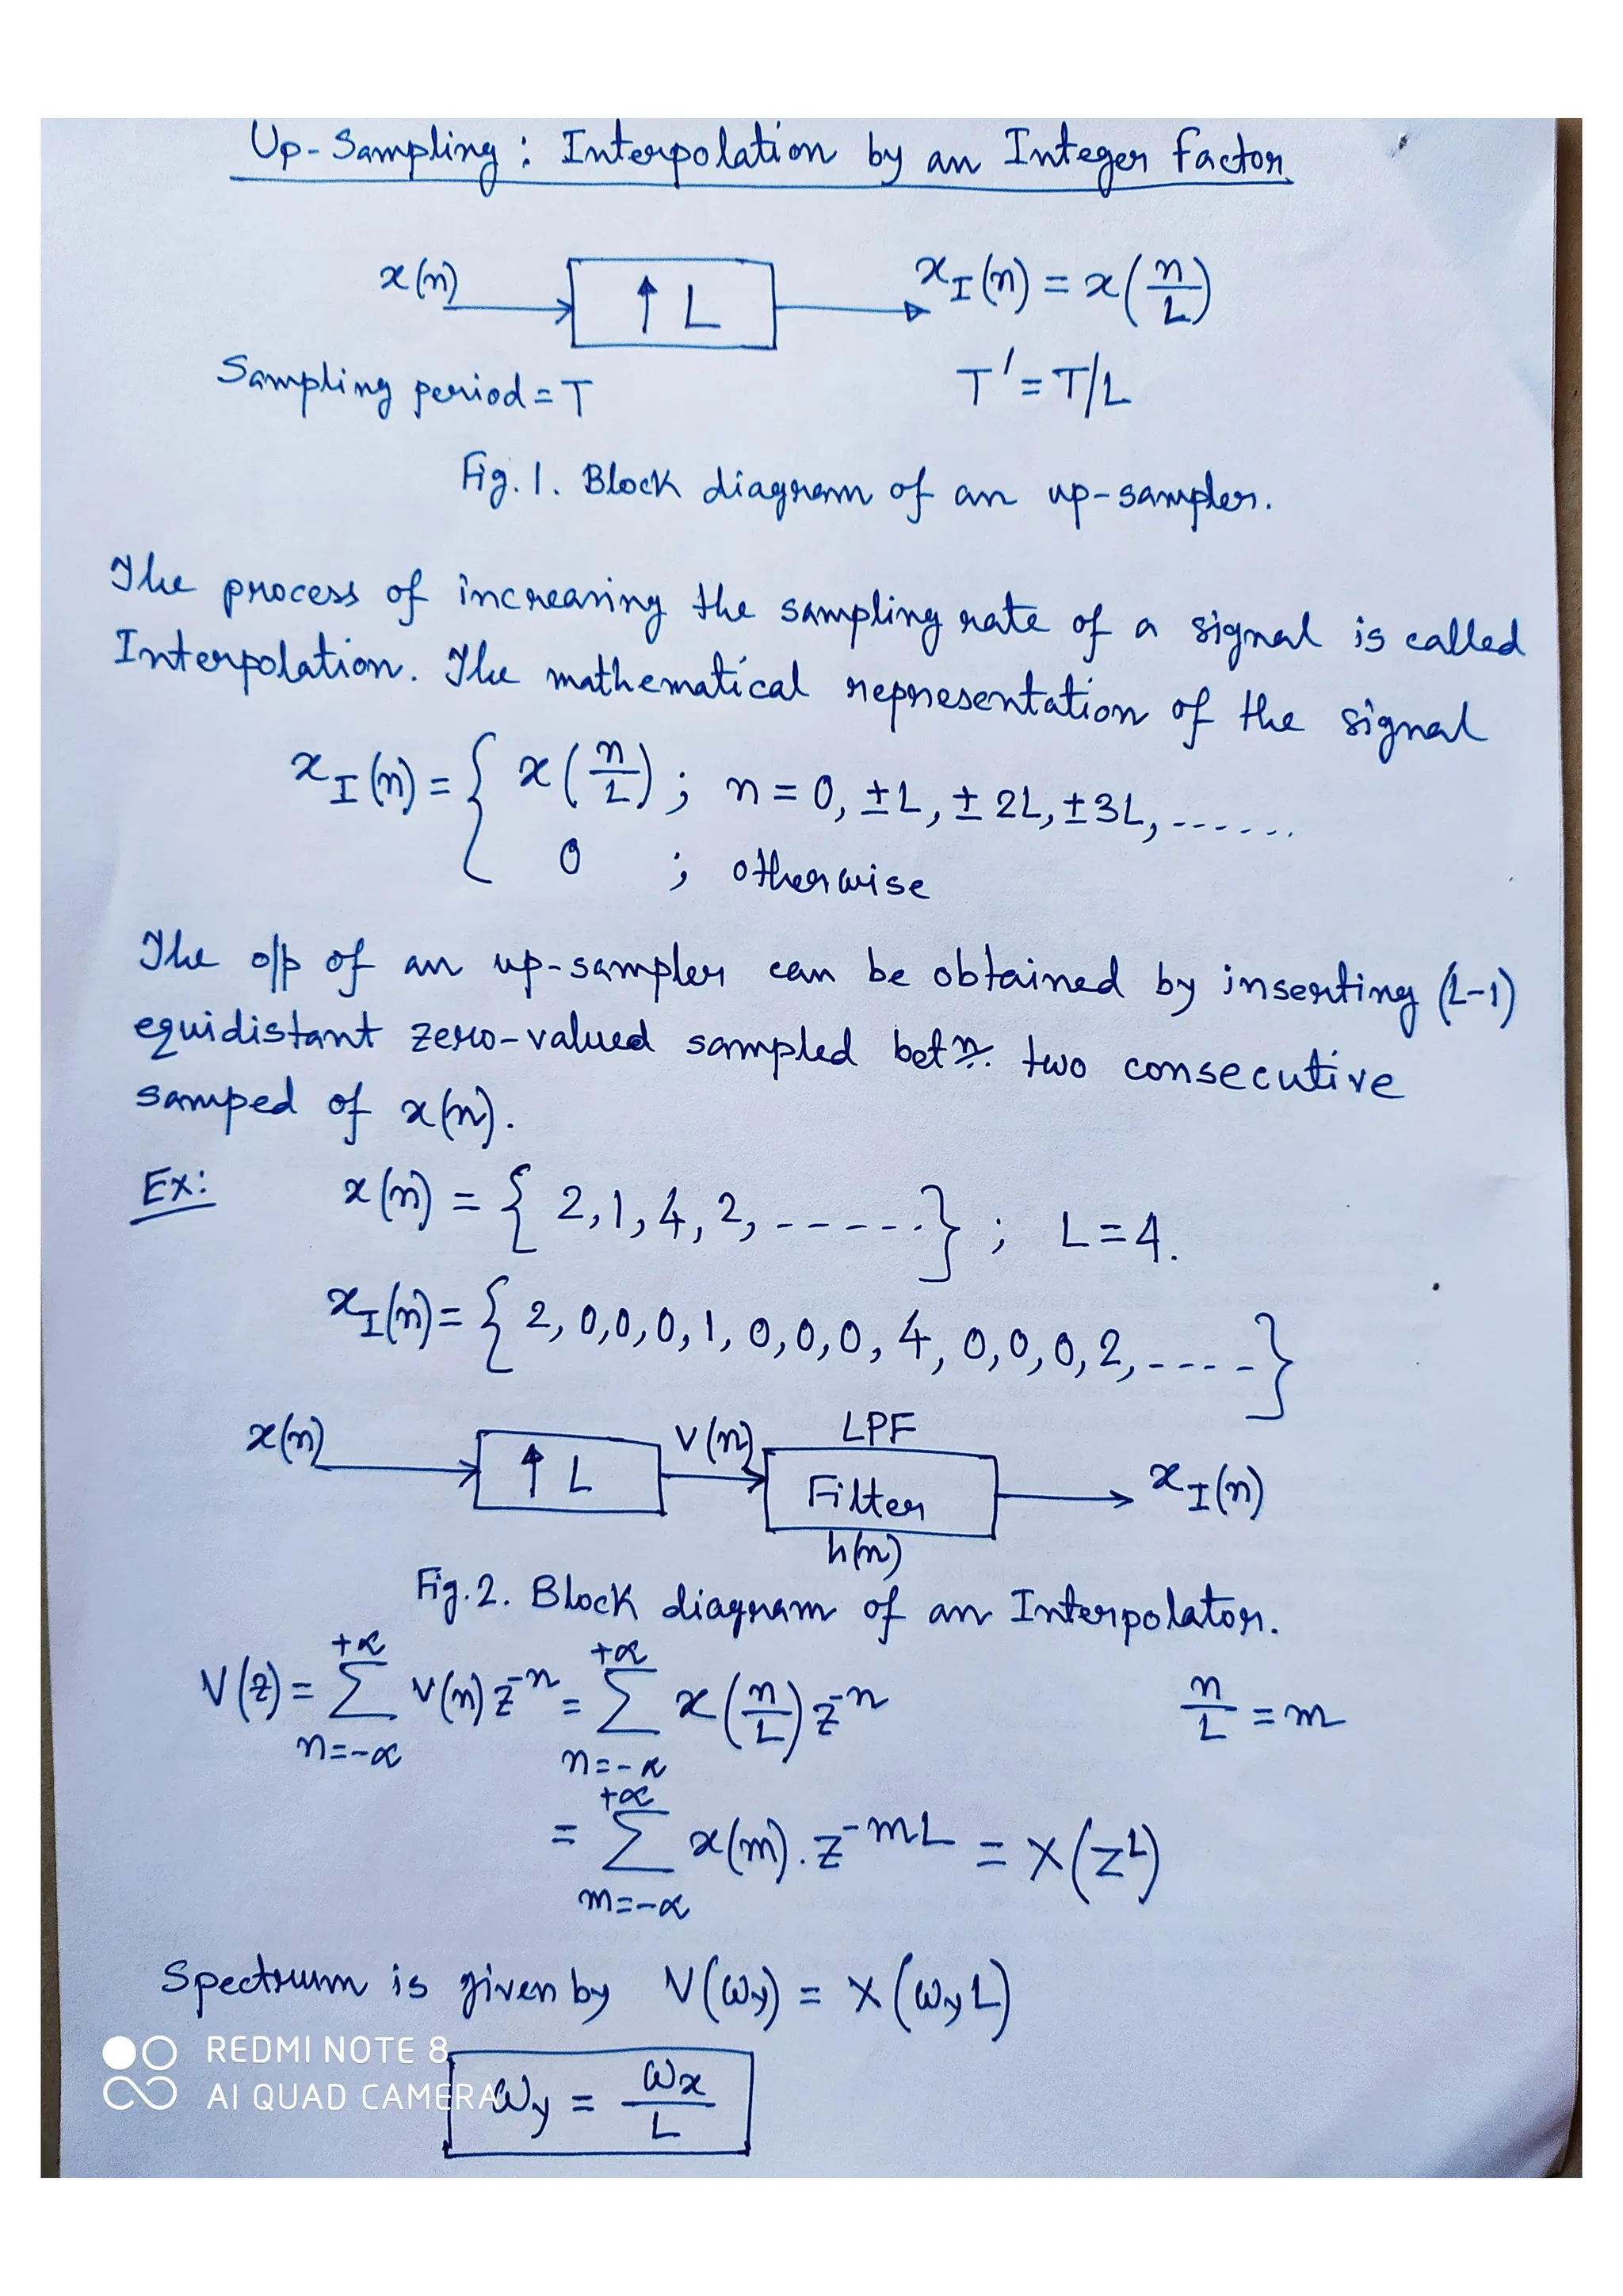 Up-Sampling : Interpolation by an Integer factor
x(n) ↑ L x_I(n) = x(n/L)
Sampling period = T T' = T/L
Fig. 1. Block diagram of an up-sampler.
The process of increasing the sampling rate of a signal is called
Interpolation. The mathematical representation of the signal
x_I(n) = { x(n/L) ; n = 0, ±L, ±2L, ±3L, ......
0 ; otherwise
The o/p of an up-sampler can be obtained by inserting (L-1)
equidistant zero-valued sampled betn. two consecutive
samped of x(n).
Ex: x(n) = { 2, 1, 4, 2, ------} ; L = 4.
x_I(n) = { 2, 0, 0, 0, 1, 0, 0, 0, 4, 0, 0, 0, 2, -----}
LPF
x(n) ↑ L V(n) Filter x_I(n)
h(n)
Fig. 2. Block diagram of an Interpolator.
V(z) = Σ_{n=-∝}^{+∝} v(n) z^{-n} = Σ_{n=-∝}^{+∝} x(n/L) z^{-n} n/L = m
= Σ_{m=-∝}^{+∝} x(m). z^{-mL} = X(z^L)
Spectrum is given by V(ω_y) = X(ω_y L)
ω_y = ω_x/L
REDMI NOTE 8
AI QUAD CAMERA